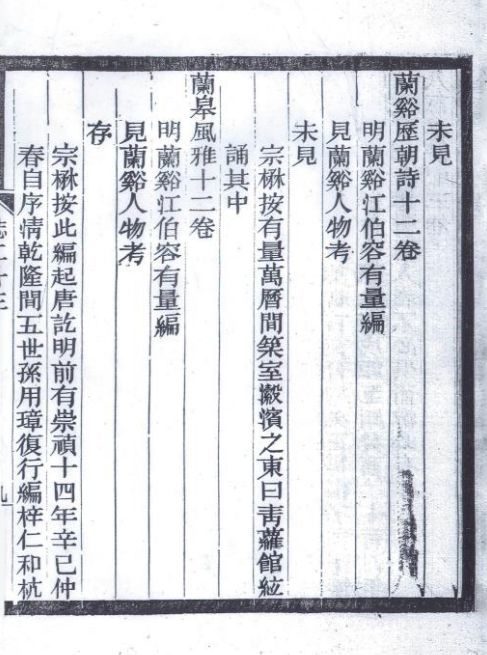 未見
蘭谿歷朝詩十二卷
明蘭谿江伯容有量編
見蘭谿人物考
未見
宗楙按有量萬曆間築室瀫濱之東曰青蘿館絃
誦其中
蘭皋風雅十二卷
明蘭谿江伯容有量編
見蘭谿人物考
存
宗楙按此編起唐訖明前有崇禎十四年辛巳仲
春自序清乾隆間五世孫用璋復行編梓仁和杭
志二十三
九